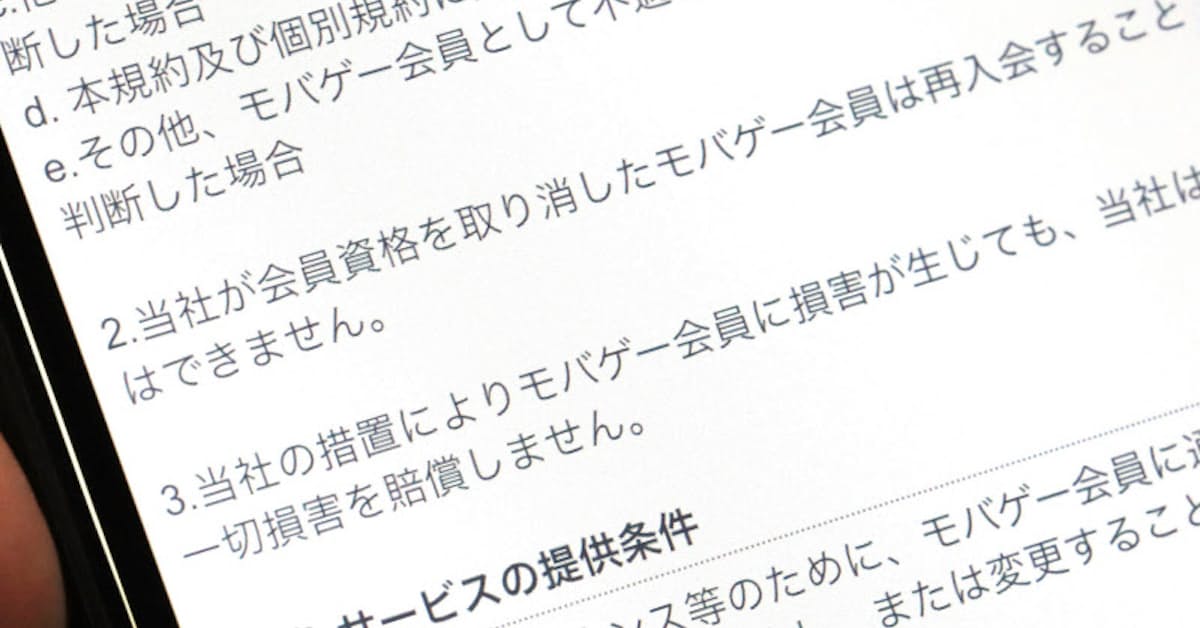 断した場合
d. 本規約及び個別規約に
e.その他、モバゲー会員として不適
判断した場合
2.当社が会員資格を取り消したモバゲー会員は再入会すること
はできません。
3.当社の措置によりモバゲー会員に損害が生じても、当社は
一切損害を賠償しません。
サービスの提供条件
ンス等のために、モバゲー会員に通
または変更すること